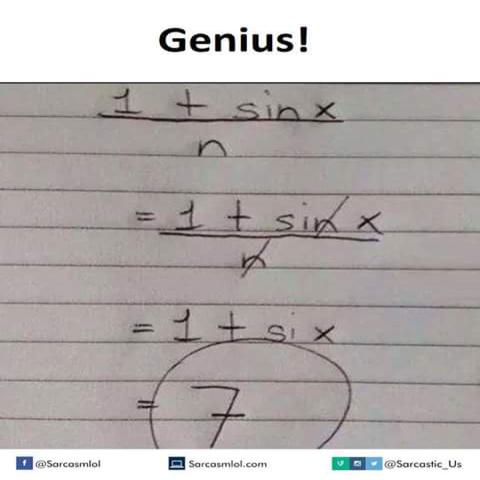 Genius!
1 + sin x
n
= 1 + sin x
n
= 1 + si x
= 7
@Sarcasmlol Sarcasmlol.com @Sarcastic_Us